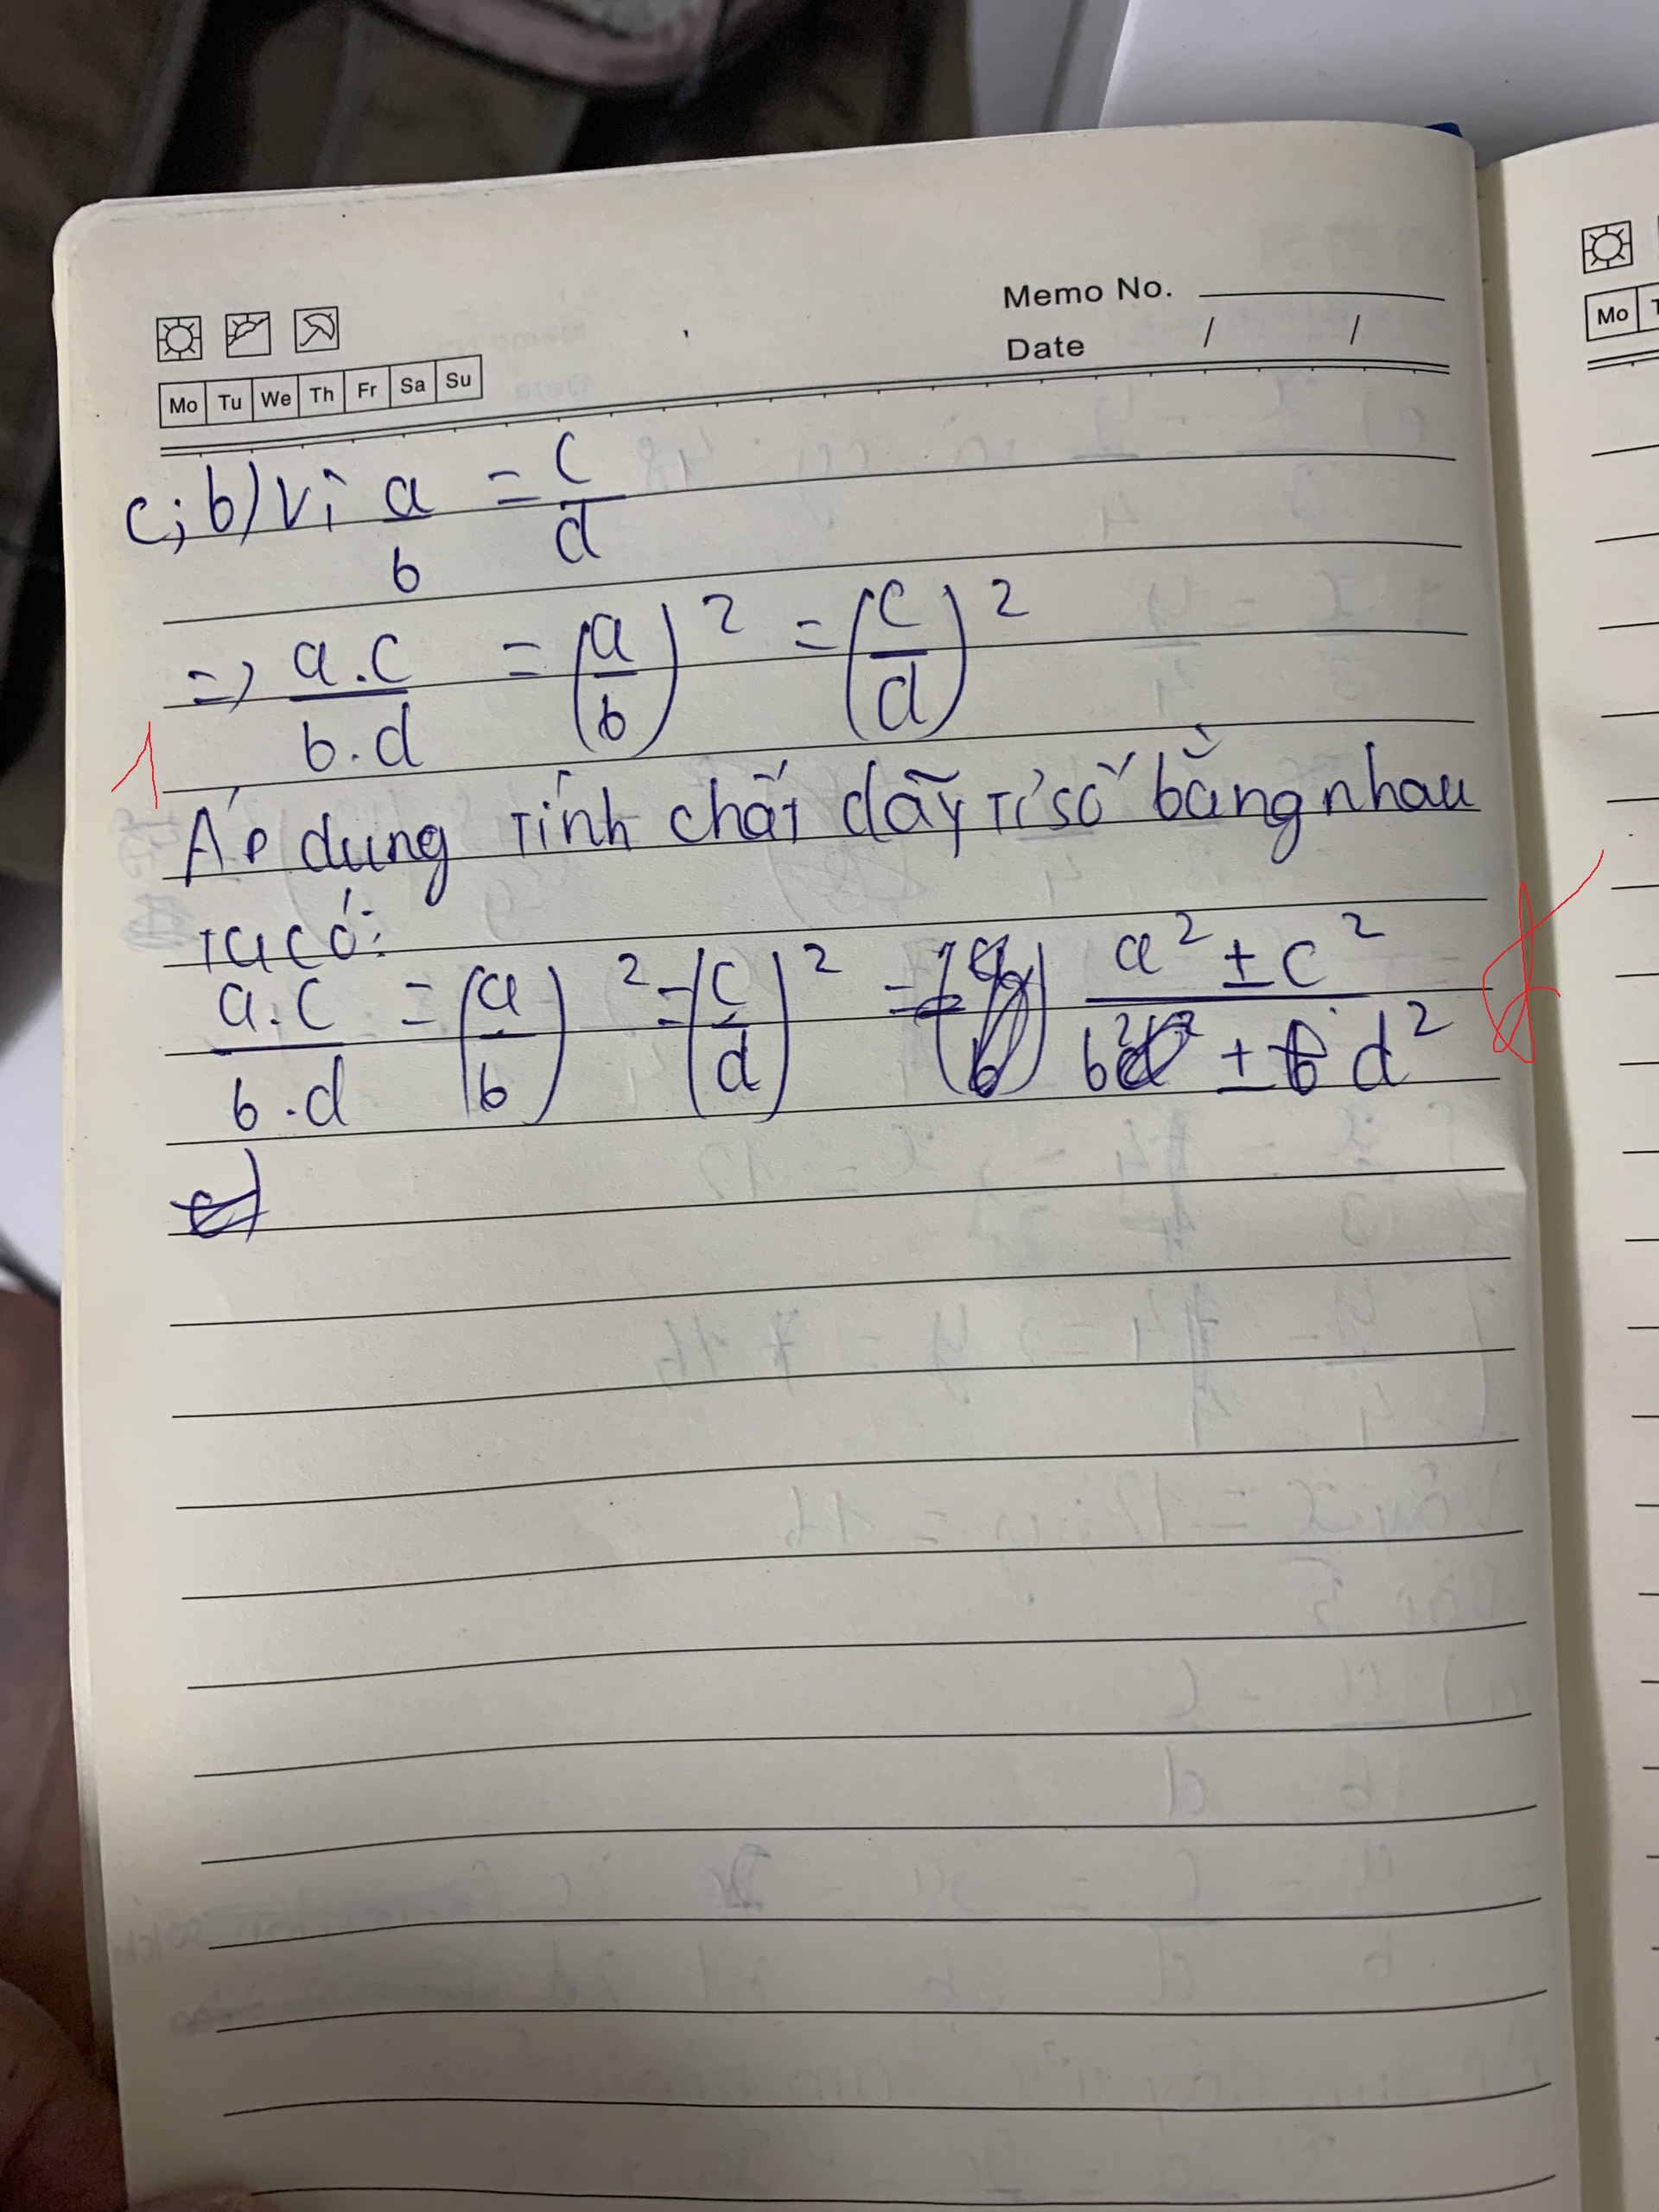 Memo No.
Date / /
Mo Tu We Th Fr Sa Su
Mo
c; b) Vì a/b = c/d
=> a.c/b.d = (a/b)² = (c/d)²
1
Áp dụng tính chất dãy tỉ số bằng nhau
ta có:
a.c/b.d = (a/b)² = (c/d)² = a² ± c²/b² ± d²